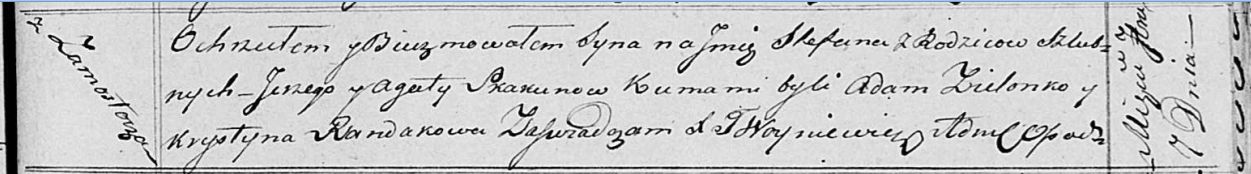 z Zamostoza
Ochrzciłem y Biezmowałem Syna na Jmię Stefana z Rodzicow Szlub=
nych - Jerzego y Agaty Skakunow Kumami byli Adam Zielonko y
Krystyna Randakowa Zaswiadczam X T Woyniewicz Adm
w Miecu
7 Dnia